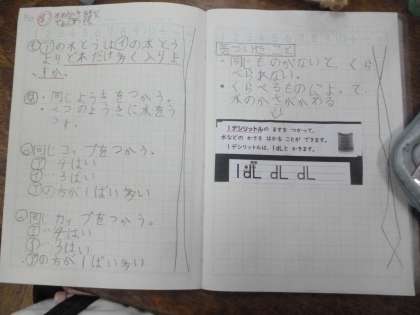 ㋐の水とうは㋑の水とう
よりどれだけ多く入りま
すか。
・同じようきをつかう。
・べつのようきに水をう
つす。
同じコップをつかう。
㋐…4はい
㋑…3はい
㋐の方が1ぱい多い
同じカップをつかう。
㋐…4はい
㋑…3はい
㋐の方が1ぱい多い
気づいたこと
・同じものがないと、くら
べられない。
・くらべるものによって、
水のかさがかわる
1デシリットルの ますを つかって、
水などの かさを はかる ことが できます。
1デシリットルは、1dLと かきます。
1dL dL dL